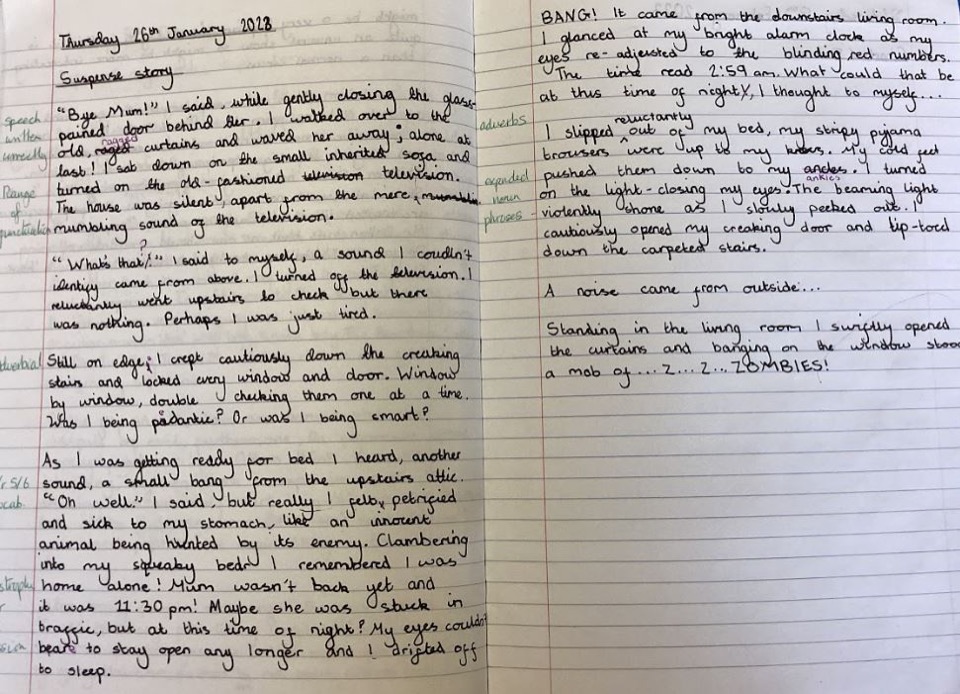 Thursday 26th January 2023
Suspense story
"Bye Mum!" I said, while gently closing the glass-
pained door behind her. I walked over to the
old, ragged curtains and waved her away; alone at
last! I sat down on the small inherited sofa and
turned on the old-fashioned television.
The house was silent, apart from the mere,
mumbling sound of the television.
"What's that?" I said to myself, a sound I couldn't
identify came from above. I turned off the television. I
reluctantly went upstairs to check, but there
was nothing. Perhaps I was just tired.
Still on edge, I crept cautiously down the creaking
stairs and locked every window and door. Window
by window, double checking them one at a time.
Was I being pedantic? Or was I being smart?
As I was getting ready for bed I heard, another
sound, a small bang from the upstairs attic.
"Oh well." I said, but really I felt petrified
and sick to my stomach, like an innocent
animal being hunted by its enemy. Clambering
into my squeaky bed I remembered I was
home alone! Mum wasn't back yet and
it was 11:30 pm! Maybe she was stuck in
traffic, but at this time of night? My eyes couldn't
bear to stay open any longer and I drifted off
to sleep.
speech
written
correctly
Range
of
punctuation
adverbial
yr 5/6
vocab
BANG! It came from the downstairs living room.
I glanced at my bright alarm clock as my
eyes re-adjusted to the blinding red numbers.
The time read 2:59 am. What could that be
at this time of night, I thought to myself...
I slipped reluctantly out of my bed, my stripy pyjama
trousers were up to my knees. My cold feet
pushed them down to my ankles. I turned
on the light-closing my eyes. The beaming light
violently shone as I slowly peeked out. I
cautiously opened my creaking door and tip-toed
down the carpeted stairs.
A noise came from outside...
Standing in the living room I swiftly opened
the curtains and banging on the window stood
a mob of ... Z... Z... ZOMBIES!
adverbs
expanded
noun
phrases